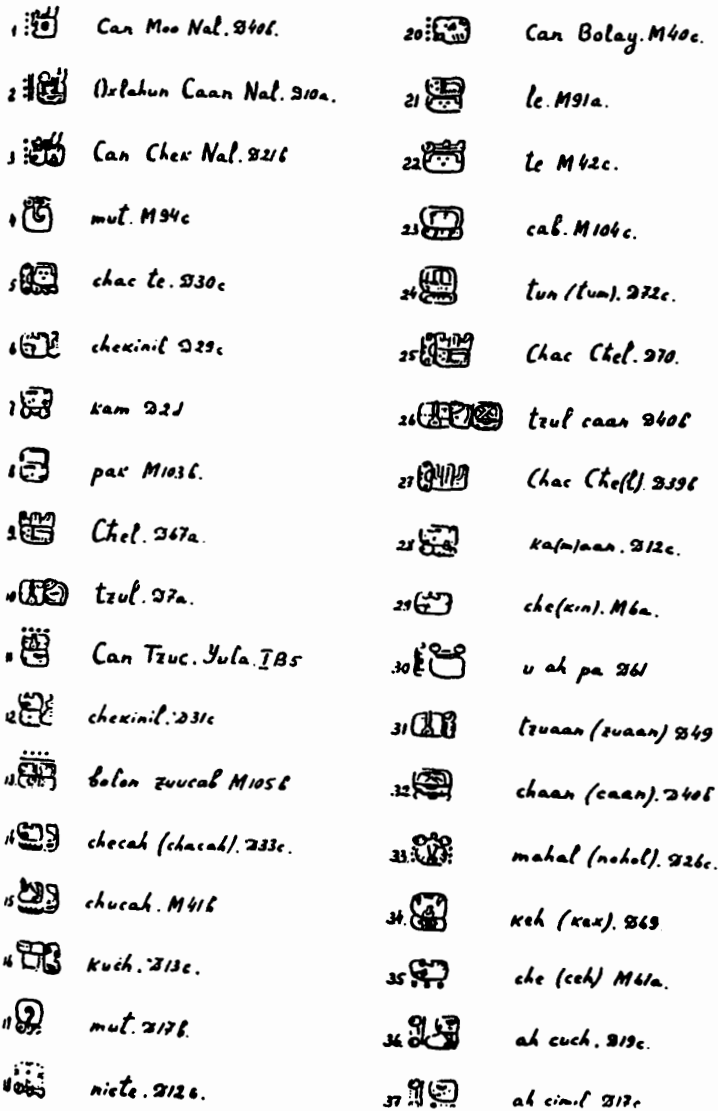 1 Can Moo Nal. D40b.
2 Oxlahun Caan Nal. D10a.
3 Can Chek Nal. D21b
4 mut. M94c
5 chac te. D30c
6 chekinil D29c
7 kam D2d
8 pak M103b.
9 Chel. D67a.
10 tzul. D7a.
11 Can Tzuc. Yula. IB5
12 chekinil. D31c
13. bolon zuucab M105b
14 checah (chacah). D33c.
15 chucah. M41b
16 kuch. D13c.
17 mut. D17b.
18 nicte. D12b.
20 Can Bolay. M40c.
21 le. M91a.
22 te M42c.
23 cab. M104c.
24 tun (tum). D72c.
25 Chac Chel. D70.
26 tzul caan D40b
27 Chac Che(l). D39b
28 ka(m)aan. D12c.
29 che(kin). M6a.
30 u ah pa D6d
31 tzuaan (zuaan) D49
32 chaan (caan). D40b
33. mahal (nohol). D26c.
34. keh (kax). D69
35 che (ceh) M61a.
36. ah cuch. D19c.
37 ah cimil D17c